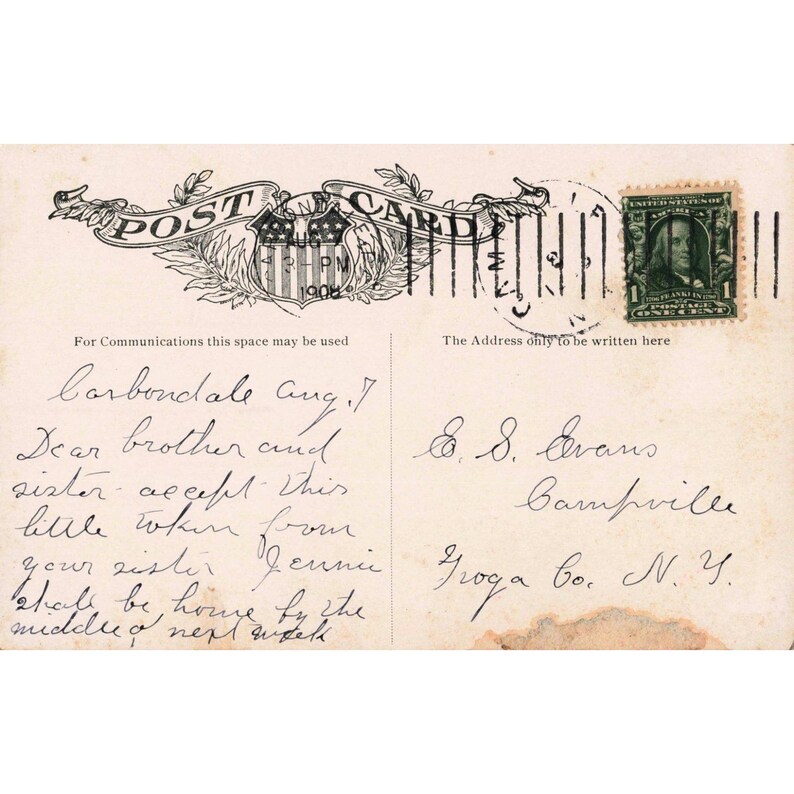 POST CARD
AUG
3 - PM
1908
SERIES 1902
UNITED STATES OF
AMERICA
1706 FRANKLIN 1790
1 POSTAGE 1
ONE CENT
For Communications this space may be used
The Address only to be written here
Carbondale Aug. 7
Dear brother and
sister accept this
little token from
your sister Jennie
shall be home by the
middle of next week
E. S. Evans
Campville
Tioga Co. N. Y.